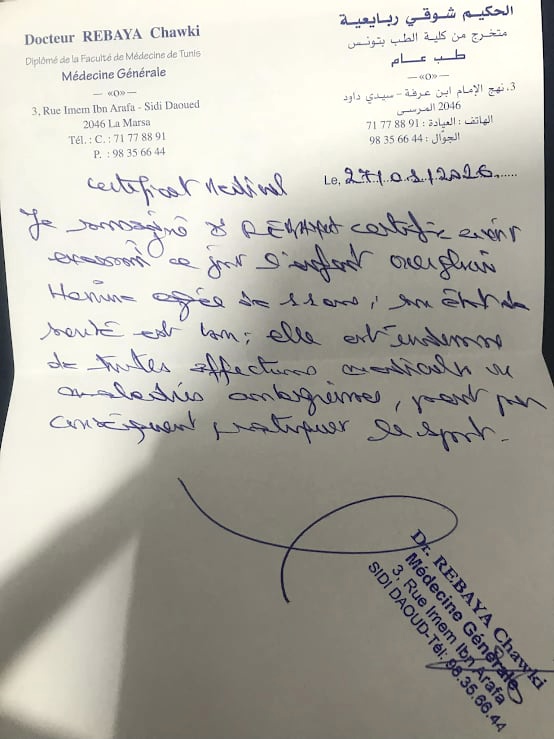 Docteur REBAYA Chawki
Diplômé de la Faculté de Médecine de Tunis
Médecine Générale
—«o»—
3, Rue Imem Ibn Arafa - Sidi Daoued
2046 La Marsa
Tél. : C. : 71 77 88 91
P. : 98 35 66 44
الحكيم شوقي ربايعية
متخرج من كلية الطب بتونس
طب عام
—«o»—
3، نهج الإمام ابن عرفة - سيدي داود
2046 المرسى
الهاتف : العيادة : 91 88 77 71
الجوّال : 44 66 35 98
Le, 27/01/2026
certificat médical
Je soussigné Dr REBAYA certifie avoir
examiné ce jour l'enfant
agée de 11 ans, son état de
santé est bon; elle est indemne
de toutes affections médicales ou
maladies contagieuses, peut par
conséquent pratiquer le sport.
Dr. REBAYA Chawki
Médecine Générale
3, Rue Imem Ibn Arafa
SIDI DAOUD-Tél: 98.35.66.44